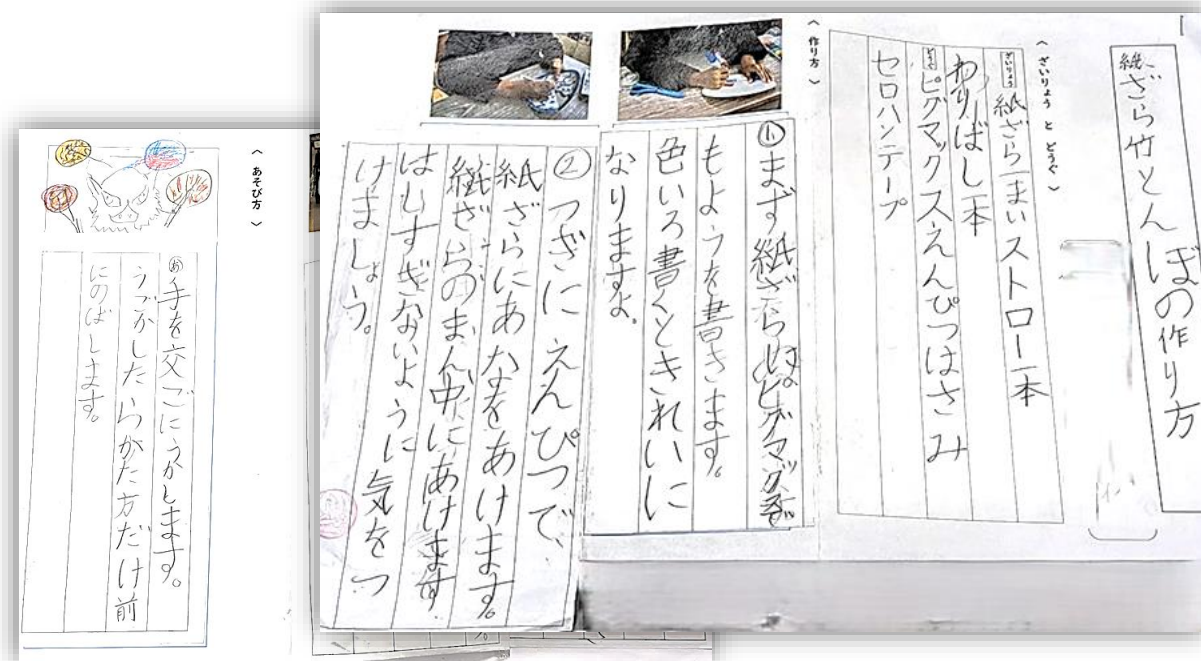 紙ざら竹とんぼの作り方
〈 ざいりょう と どうぐ 〉
ざいりょう 紙ざら一まいストロー一本
わりばし一本
どうぐ ピグマックスえんぴつはさみ
セロハンテープ
〈 作り方 〉
①まず紙ざらにピグマックスで
もようを書きます。
色いろ書くときれいに
なりますよ。
②つぎにえんぴつで、
紙ざらにあなをあけます。
紙ざらのまん中にあけます
はしすぎないように気をつ
けましょう。
〈 あそび方 〉
手を交ごにうかします。
うごかしたらかた方だけ前
にのばします。